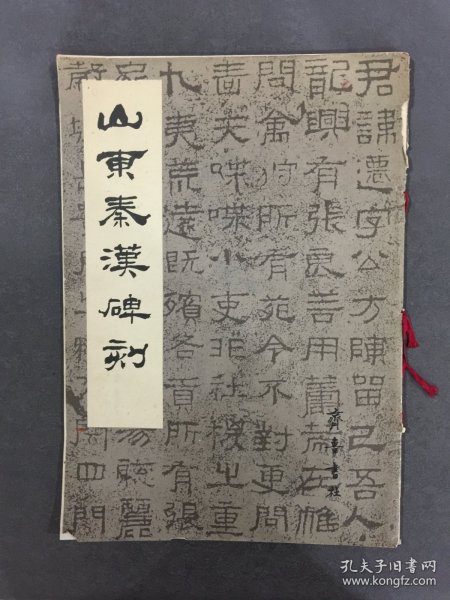 君諱遷字公方陳留己吾人
龍興有張良善用籌策在帷
問禽狩所有苑令不對更問
嗇夫喋喋小吏非社稷之重
九夷荒遠既殯各貢所有張
山東秦漢碑刻
齊魯書社
孔夫子旧书网
www.kongfz.com